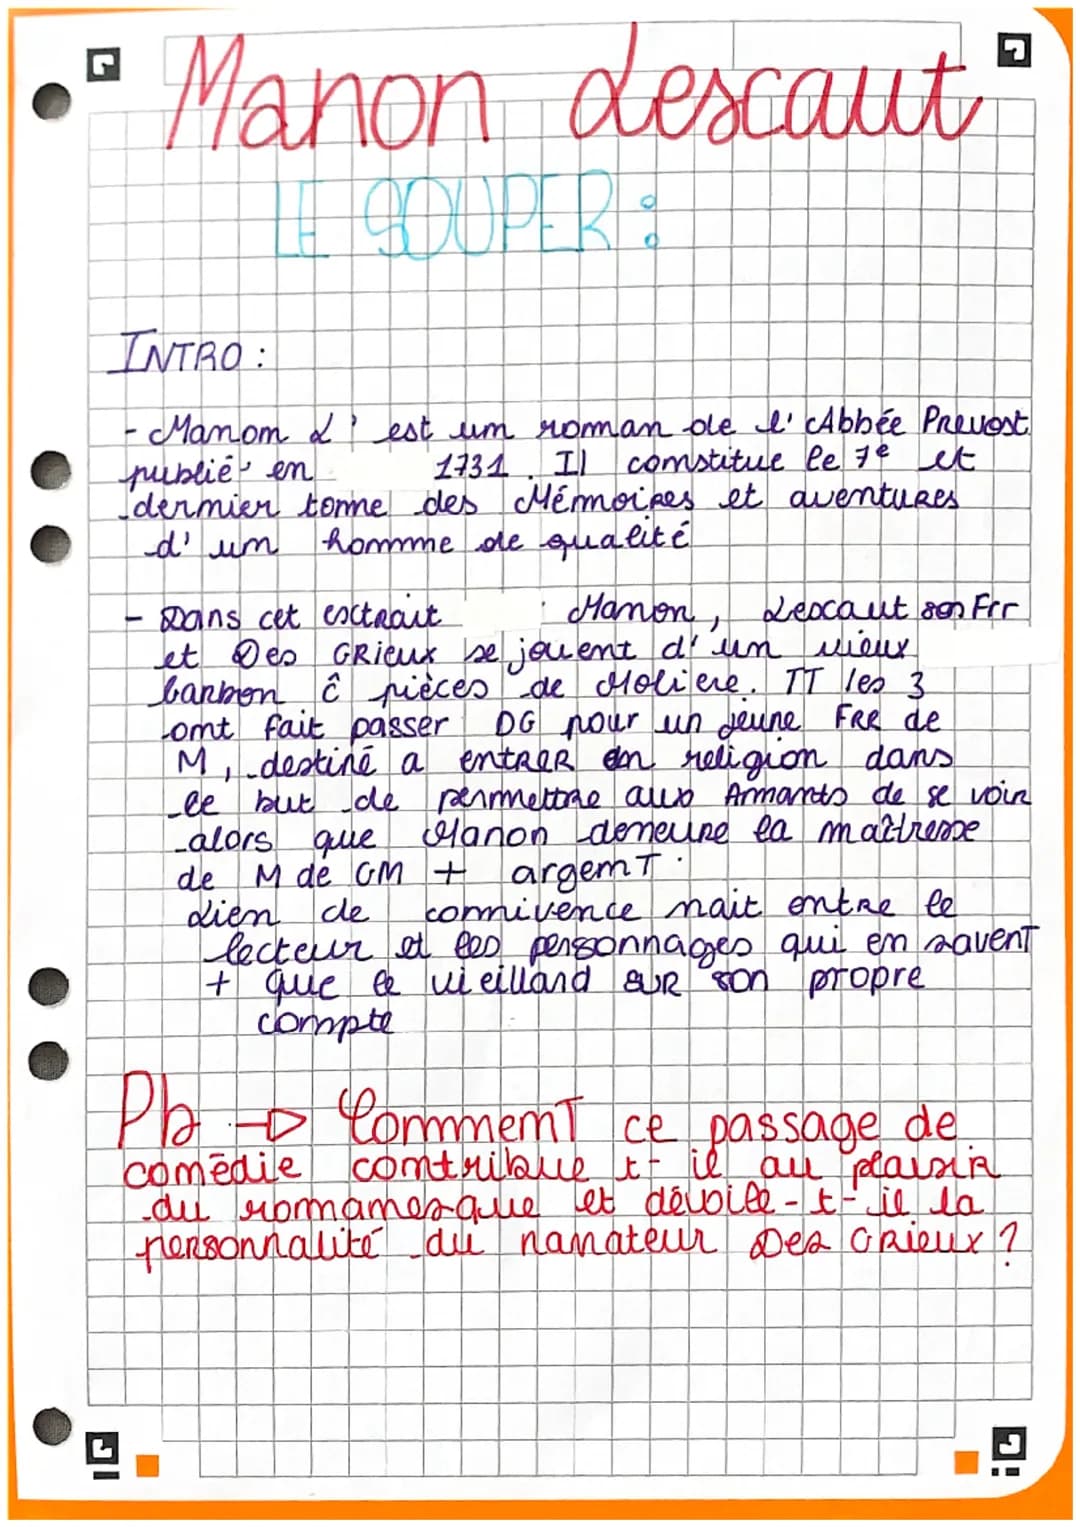 Manon Lescaut
LE SOUPER :
INTRO :
- Manon L' est un roman de l'Abbée Prevost
publié en 1731. Il constitue le 7e et
dernier tome des Mémoires et aventures
d'un homme de qualité
- Dans cet extrait Manon, Lescaut son Frr
et Des GRieux se jouent d'un vieux
barbon ĉ pièces de Moliere. TT les 3
ont fait passer DG pour un jeune FRR de
M, destiné a entreR en religion dans
le but de permettre aux Amants de se voir
alors que Manon demeure la maîtresse
de M de GM + argent.
Lien de connivence nait entre le
lecteur et les personnages qui en savent
+ que le vieillard suR son propre
compte
Pb → Comment ce passage de
comédie contribue t-il au plaisir
du romanesque et dévoile-t-il la
personnalité du narrateur Des GRieux ?